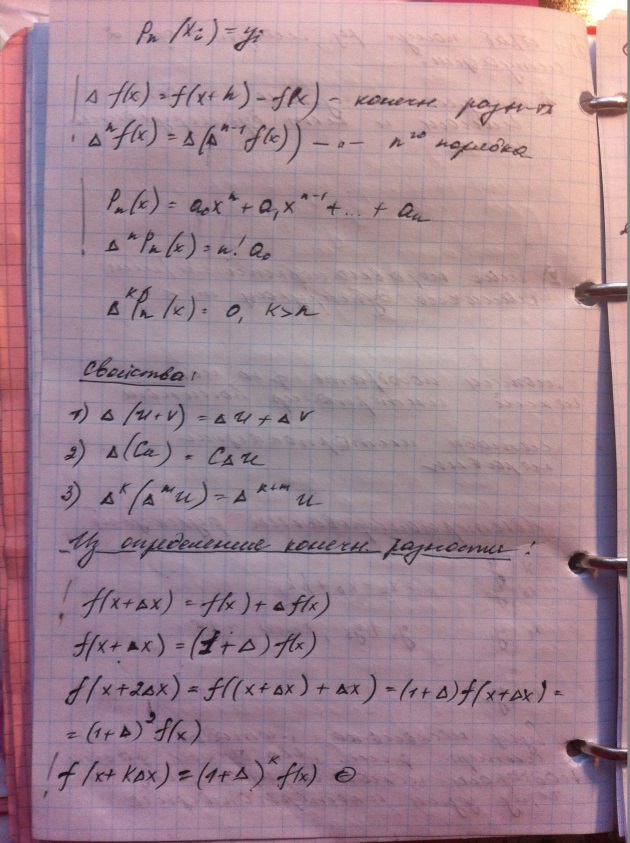 Pn(xi) = yi
Δ f(x) = f(x+h) - f(x) - конечн. разн-ть
Δⁿf(x) = Δ(Δⁿ⁻¹f(x)) - " - nго порядка
Pn(x) = a₀xⁿ + a₁xⁿ⁻¹ + ... + an
ΔⁿPn(x) = n! a₀
ΔᵏPn(x) = 0, k>n
Свойства:
1) Δ(u+v) = Δu + Δv
2) Δ(Cu) = CΔu
3) Δᵏ(Δᵐu) = Δᵏ⁺ᵐu
Из определения конечн. разности:
! f(x+Δx) = f(x) + Δf(x)
f(x+Δx) = (1+Δ) f(x)
f(x+2Δx) = f((x+Δx) + Δx) = (1+Δ)f(x+Δx) =
= (1+Δ)²f(x)
! f(x+kΔx) = (1+Δ)ᵏf(x) ⊖